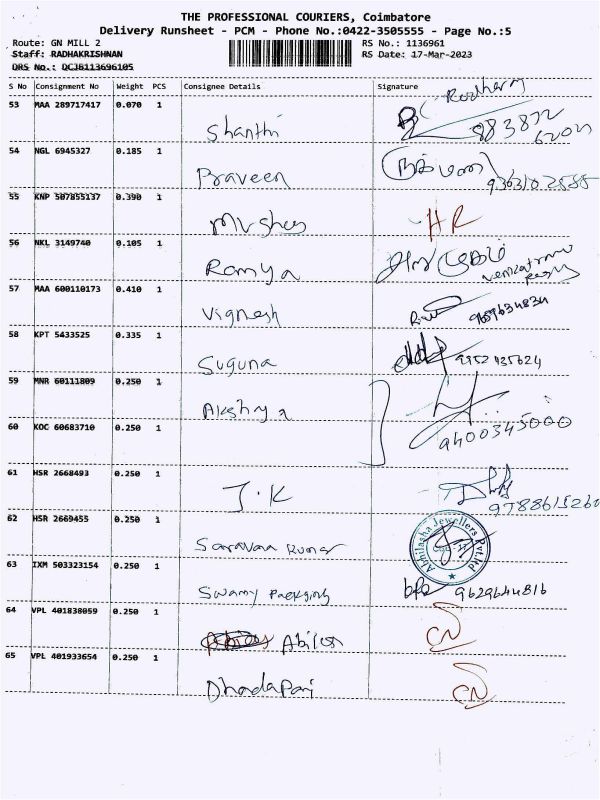 THE PROFESSIONAL COURIERS, Coimbatore
Delivery Runsheet - PCM - Phone No.:0422-3505555 - Page No.:5
Route: GN MILL 2
RS No.: 1136961
Staff: RADHAKRISHNAN
RS Date: 17-Mar-2023
DRS No.: DCJB113696105
S No Consignment No Weight PCS Consignee Details Signature
53 MAA 289717417 0.070 1
Shanthi
54 NGL 6945327 0.185 1
Praveen
55 KNP 507855137 0.390 1
HR
56 NKL 3149740 0.105 1
Ramya
57 MAA 600110173 0.410 1
Vignesh 9659634834
58 KPT 5433525 0.335 1
Suguna 9952135624
59 MNR 60111809 0.250 1
Akshya
60 KOC 60683710 0.250 1
9400345000
61 HSR 2668493 0.250 1
J.K 9788615260
62 HSR 2669455 0.250 1
Saravana Kumar Abhilasha Jewellers Pvt Ltd
63 IXM 503323154 0.250 1
Swamy Packaging 9629644816
64 VPL 401838059 0.250 1
CN
65 VPL 401933654 0.250 1
CN